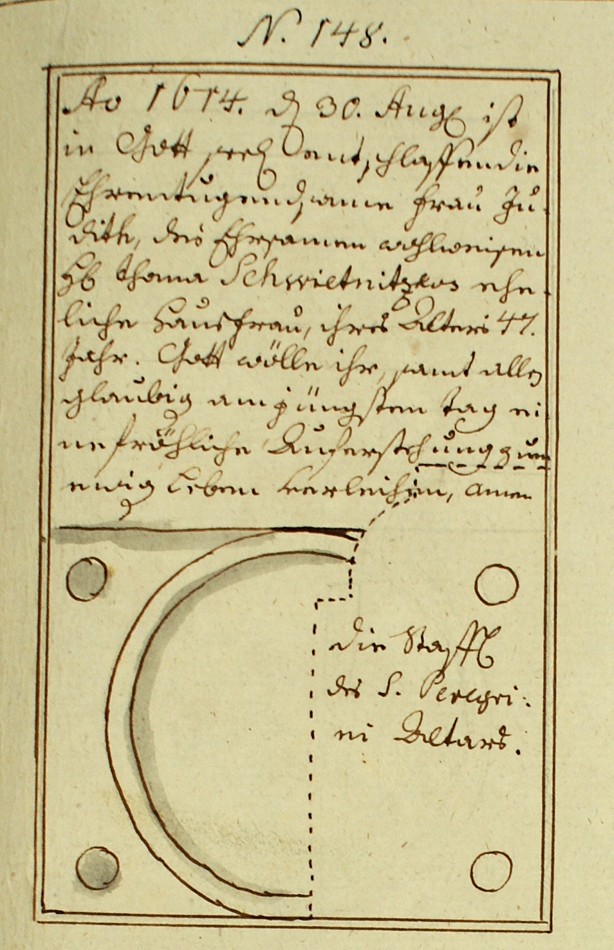 N. 148.
Ao 1614. d 30. Aug ist
in Gott seel entschlaffen die
Ehrentugendsame Frau Ju-
dith, des Ehrsamen wohlweisen
Hb Thoma Schwietnitzkos ehe-
liche Hausfrau, ihres Alters 47.
Jahr. Gott wölle ihr, samt allen
glaubig am jüngsten tag ei-
ne fröhliche Auferstehung zum
ewig Leben verleihen, Amen
die Staffl
des S. Peregri-
ni Altars.